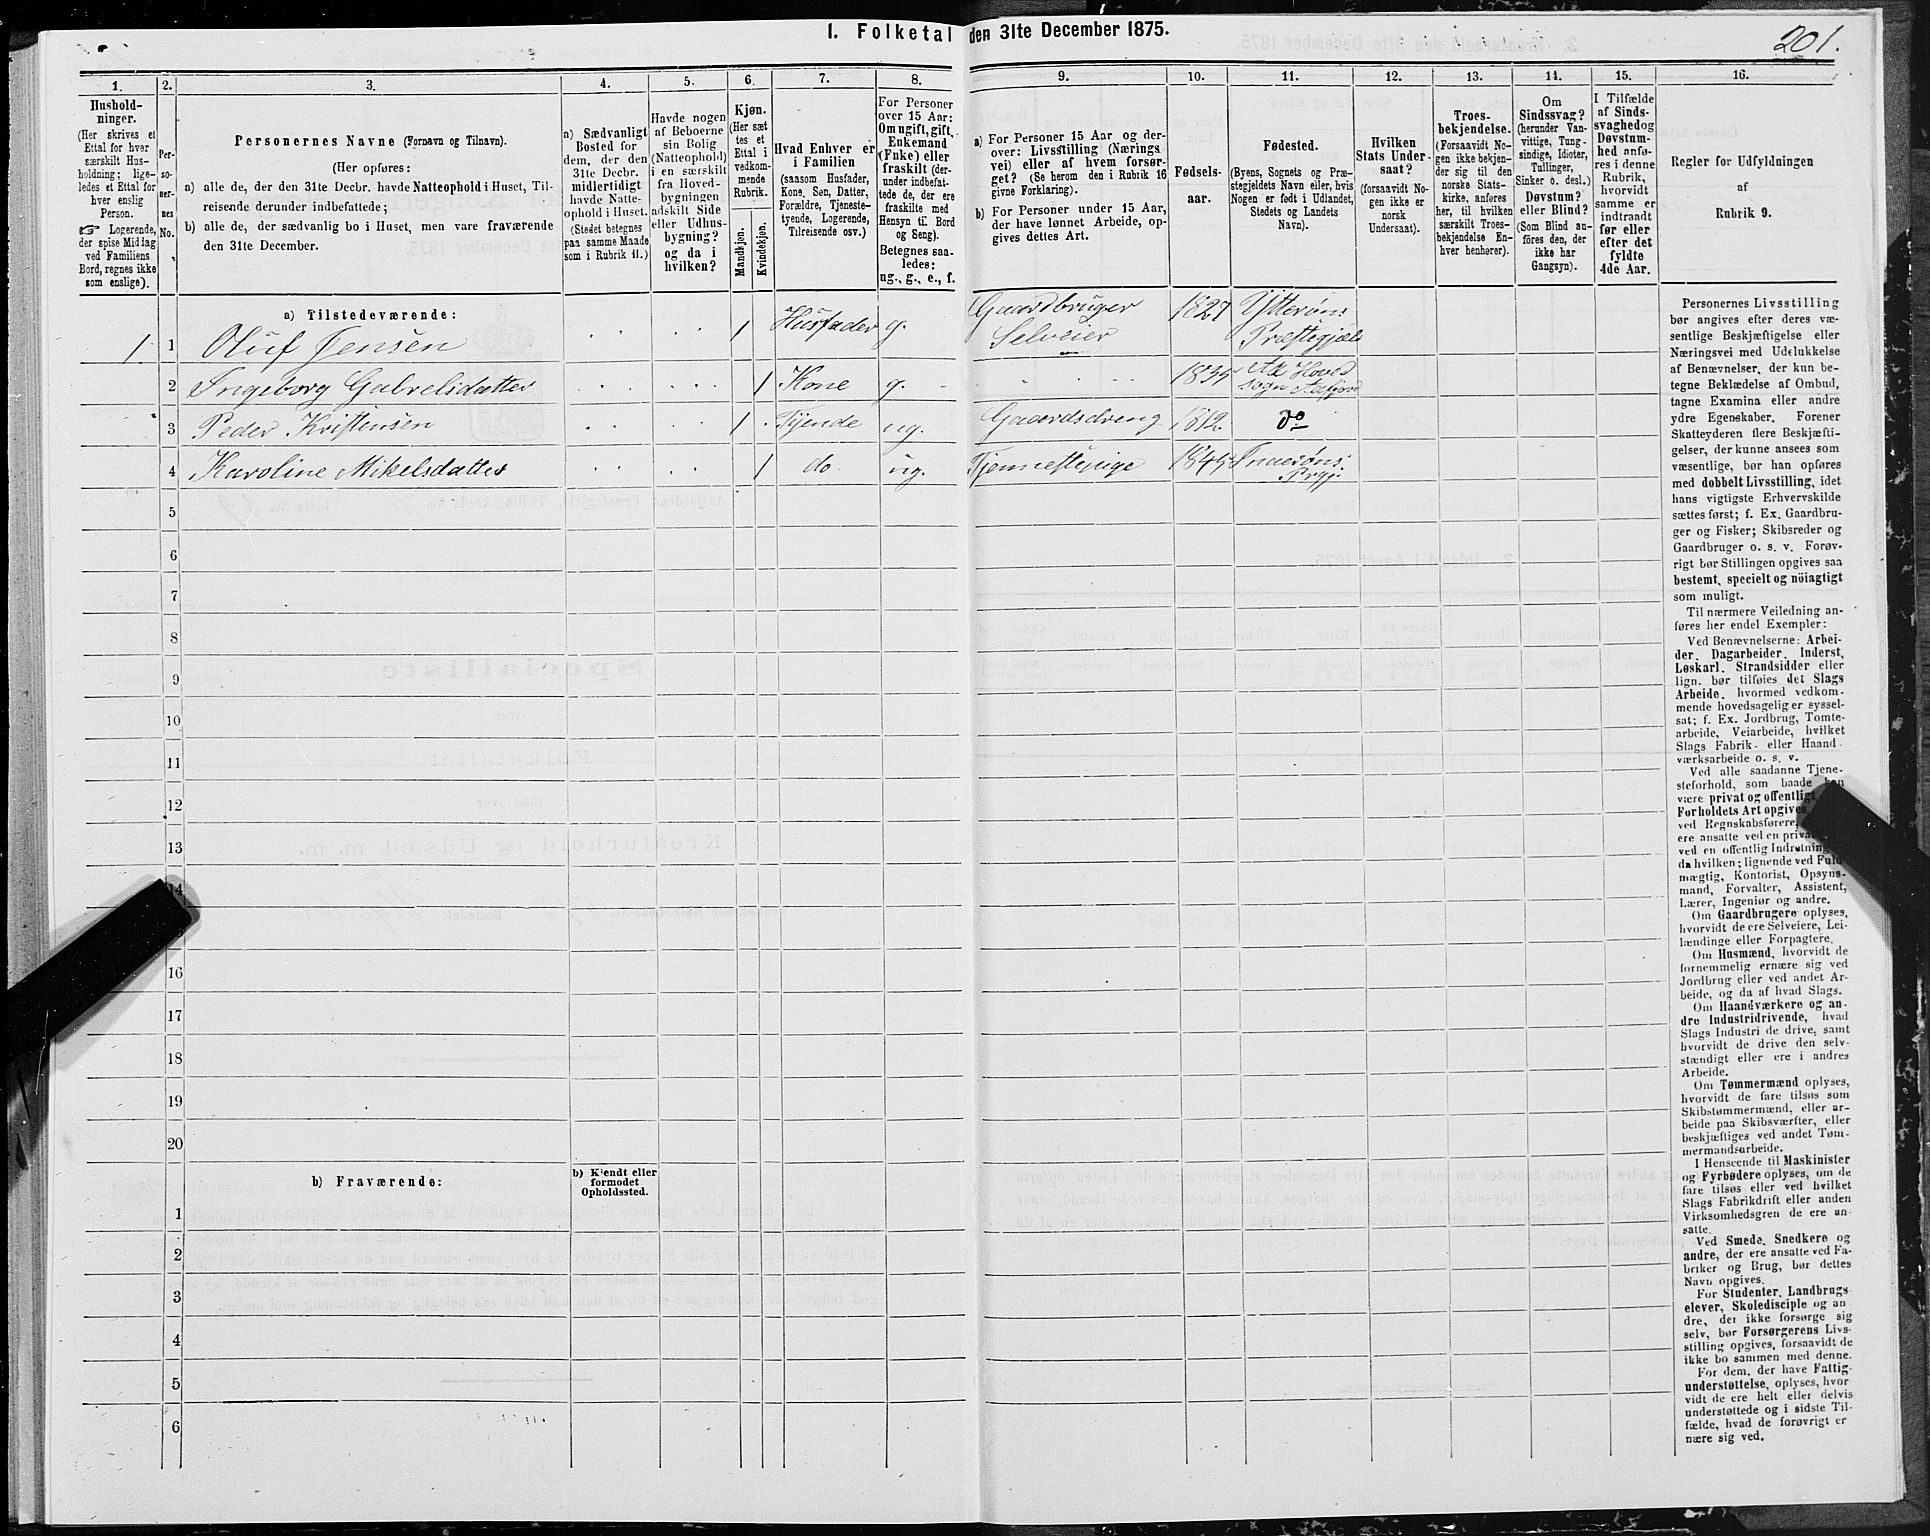 1. Folketal den 31te December 1875.
201.
1.
2.
3.
4.
5.
6.
7.
8.
9.
10.
11.
12.
13.
14.
15.
16.
Hushold-
ninger.
(Her skrives et
Ettal for hver
særskilt Hus-
holdning; lige-
ledes et Ettal for
hver enslig
Person.
Logerende,
der spise Middag
ved Familiens
Bord, regnes ikke
som enslige).
Per-
so-
ner-
nes
No.
Personernes Navne (Fornavn og Tilnavn).
(Her opføres:
a) alle de, der den 31te Decbr. havde Natteophold i Huset, Til-
reisende derunder indbefattede;
b) alle de, der sædvanlig bo i Huset, men vare fraværende
den 31te December.
a) Sædvanligt
Bosted for
dem, der den
31te Decbr.
midlertidigt
havde Natte-
ophold i Huset.
(Stedet betegnes
paa samme Maade
som i Rubrik 11.)
Havde nogen
af Beboerne
sin Bolig
(Natteophold)
i en særskilt
fra Hoved-
bygningen
adskilt Side
eller Udhus-
bygning?
og da i
hvilken?
Kjøn.
(Her sæt-
tes et
Ettal i
vedkom-
mende
Rubrik.
Mandkjøn.
Kvindekjøn.
Hvad Enhver er
i Familien
(saasom Husfader,
Kone, Søn, Datter,
Forældre, Tjeneste-
tyende, Logerende,
Tilreisende osv.)
For Personer
over 15 Aar:
Om ugift, gift,
Enkemand
(Enke) eller
fraskilt (der-
under indbefat-
tede de, der ere
fraskilte med
Hensyn til Bord
og Seng).
Betegnes saa-
ledes:
ug., g., e., f.
a) For Personer 15 Aar og der-
over: Livsstilling (Nærings
vei) eller af hvem forsør-
get? (Se herom den i Rubrik 16
givne Forklaring).
b) For Personer under 15 Aar,
der have lønnet Arbeide, op-
gives dettes Art.
Fødsels-
aar.
Fødested.
(Byens, Sognets og Præ-
stegjeldets Navn eller, hvis
Nogen er født i Udlandet,
Stedets og Landets
Navn).
Hvilken
Stats Under-
saat?
(forsaavidt No-
gen ikke er
norsk
Undersaat).
Troes-
bekjendelse.
(Forsaavidt No-
gen ikke bekjen-
der sig til den
norske Stats-
kirke, anføres
her, til hvilken
særskilt Troes-
bekjendelse En-
hver henhører).
Om
Sindssvag?
(herunder Van-
vittige, Tung-
sindige, Idioter,
Tullinger,
Sinker o. desl.)
Døvstum?
eller Blind?
(Som Blind an-
føres den, der
ikke har
Gangsyn).
I Tilfælde
af Sinds-
svaghed og
Døvstum-
hed anfø-
res i denne
Rubrik,
hvorvidt
samme er
indtraadt
før eller
efter det
fyldte
4de Aar.
Regler for Udfyldningen
af
Rubrik 9.
a) Tilstedeværende:
1. 1 Oluf Jensen 1 Husfader g. Gaardbruger Selveier 1827 Ytterøns Præstegjæld
2 Ingeborg Gabrelsdatter 1 Kone g. 1835 Aa Hoved sogn Aafjord
3 Peder Kristensen 1 Tjende ug. Gaardsdreng 1812. do
4 Karoline Mikelsdatter 1 do ug. Tjennestepige 1845 Inderøns Prgj.
5
6
7
8
9
10
11
12
13
14
16
17
18
19
20
b) Fraværende:
b) Kjendt eller
formodet
Opholdssted.
1
2
3
4
5
6
Personernes Livsstilling
bør angives efter deres væ-
sentlige Beskjæftigelse eller
Næringsvei med Udelukkelse
af Benævnelser, der kun be-
tegne Beklædelse af Ombud,
tagne Examina eller andre
ydre Egenskaber. Forener
Skatteyderen flere Beskjæfti-
gelser, der kunne ansees som
væsentlige, bør han opføres
med dobbelt Livsstilling, idet
hans vigtigste Erhvervskilde
sættes først; f. Ex. Gaardbru-
ger og Fisker; Skibsreder og
Gaardbruger o. s. v. Forøv-
rigt bør Stillingen opgives saa
bestemt, specielt og nöiagtigt
som muligt.
Til nærmere Veiledning an-
føres her endel Exempler:
Ved Benævnelserne: Arbei-
der, Dagarbeider, Inderst,
Løskarl, Strandsidder eller
lign. bør tilføies det Slags
Arbeide, hvormed vedkom-
mende hovedsagelig er syssel-
sat; f. Ex. Jordbrug, Tomte-
arbeide, Veiarbeide, hvilket
Slags Fabrik- eller Haand-
værksarbeide o. s. v.
Ved alle saadanne Tjene-
steforhold, som baade kan
være privat og offentligt,
Forholdets Art opgives,
ved Regnskabsførere,
ere ansatte ved en privat
ved en offentlig Indretning
da hvilken; lignende ved Fuld-
mægtig, Kontorist, Opsyns-
mand, Forvalter, Assistent,
Lærer, Ingeniør og andre.
Om Gaardbrugere oplyses,
hvorvidt de ere Selveiere, Lei-
lændinge eller Forpagtere.
Om Husmænd, hvorvidt de
fornemmelig ernære sig ved
Jordbrug eller ved andet Ar-
beide, og da af hvad Slags.
Om Haandværkere og an-
dre Industridrivende, hvad
Slags Industri de drive, samt
hvorvidt de drive den selv-
stændigt eller ere i andres
Arbeide.
Om Tømmermænd oplyses,
hvorvidt de fare tilsøs som
Skibstømmermænd, eller ar-
beide paa Skibsværfter, eller
beskjæftiges ved andet Tøm-
mermandsarbeide.
I Henseende til Maskinister
og Fyrbødere oplyses, om de
fare tilsøs eller ved hvilket
Slags Fabrikdrift eller anden
Virksomhedsgren de ere an-
satte.
Ved Smede, Snedkere og
andre, der ere ansatte ved Fa-
briker og Brug, bør dettes
Navn opgives.
For Studenter, Landbrugs-
elever, Skoledisciple og an-
dre, der ikke forsørge sig
selv, bør Forsørgerens Livs-
stilling opgives, forsaavidt de
ikke bo sammen med denne.
For dem, der have Fattig-
understøttelse, oplyses, hvor-
vidt de ere helt eller delvis
understøttede og i sidste Til-
fælde, hvad de forøvrigt er
nære sig ved.